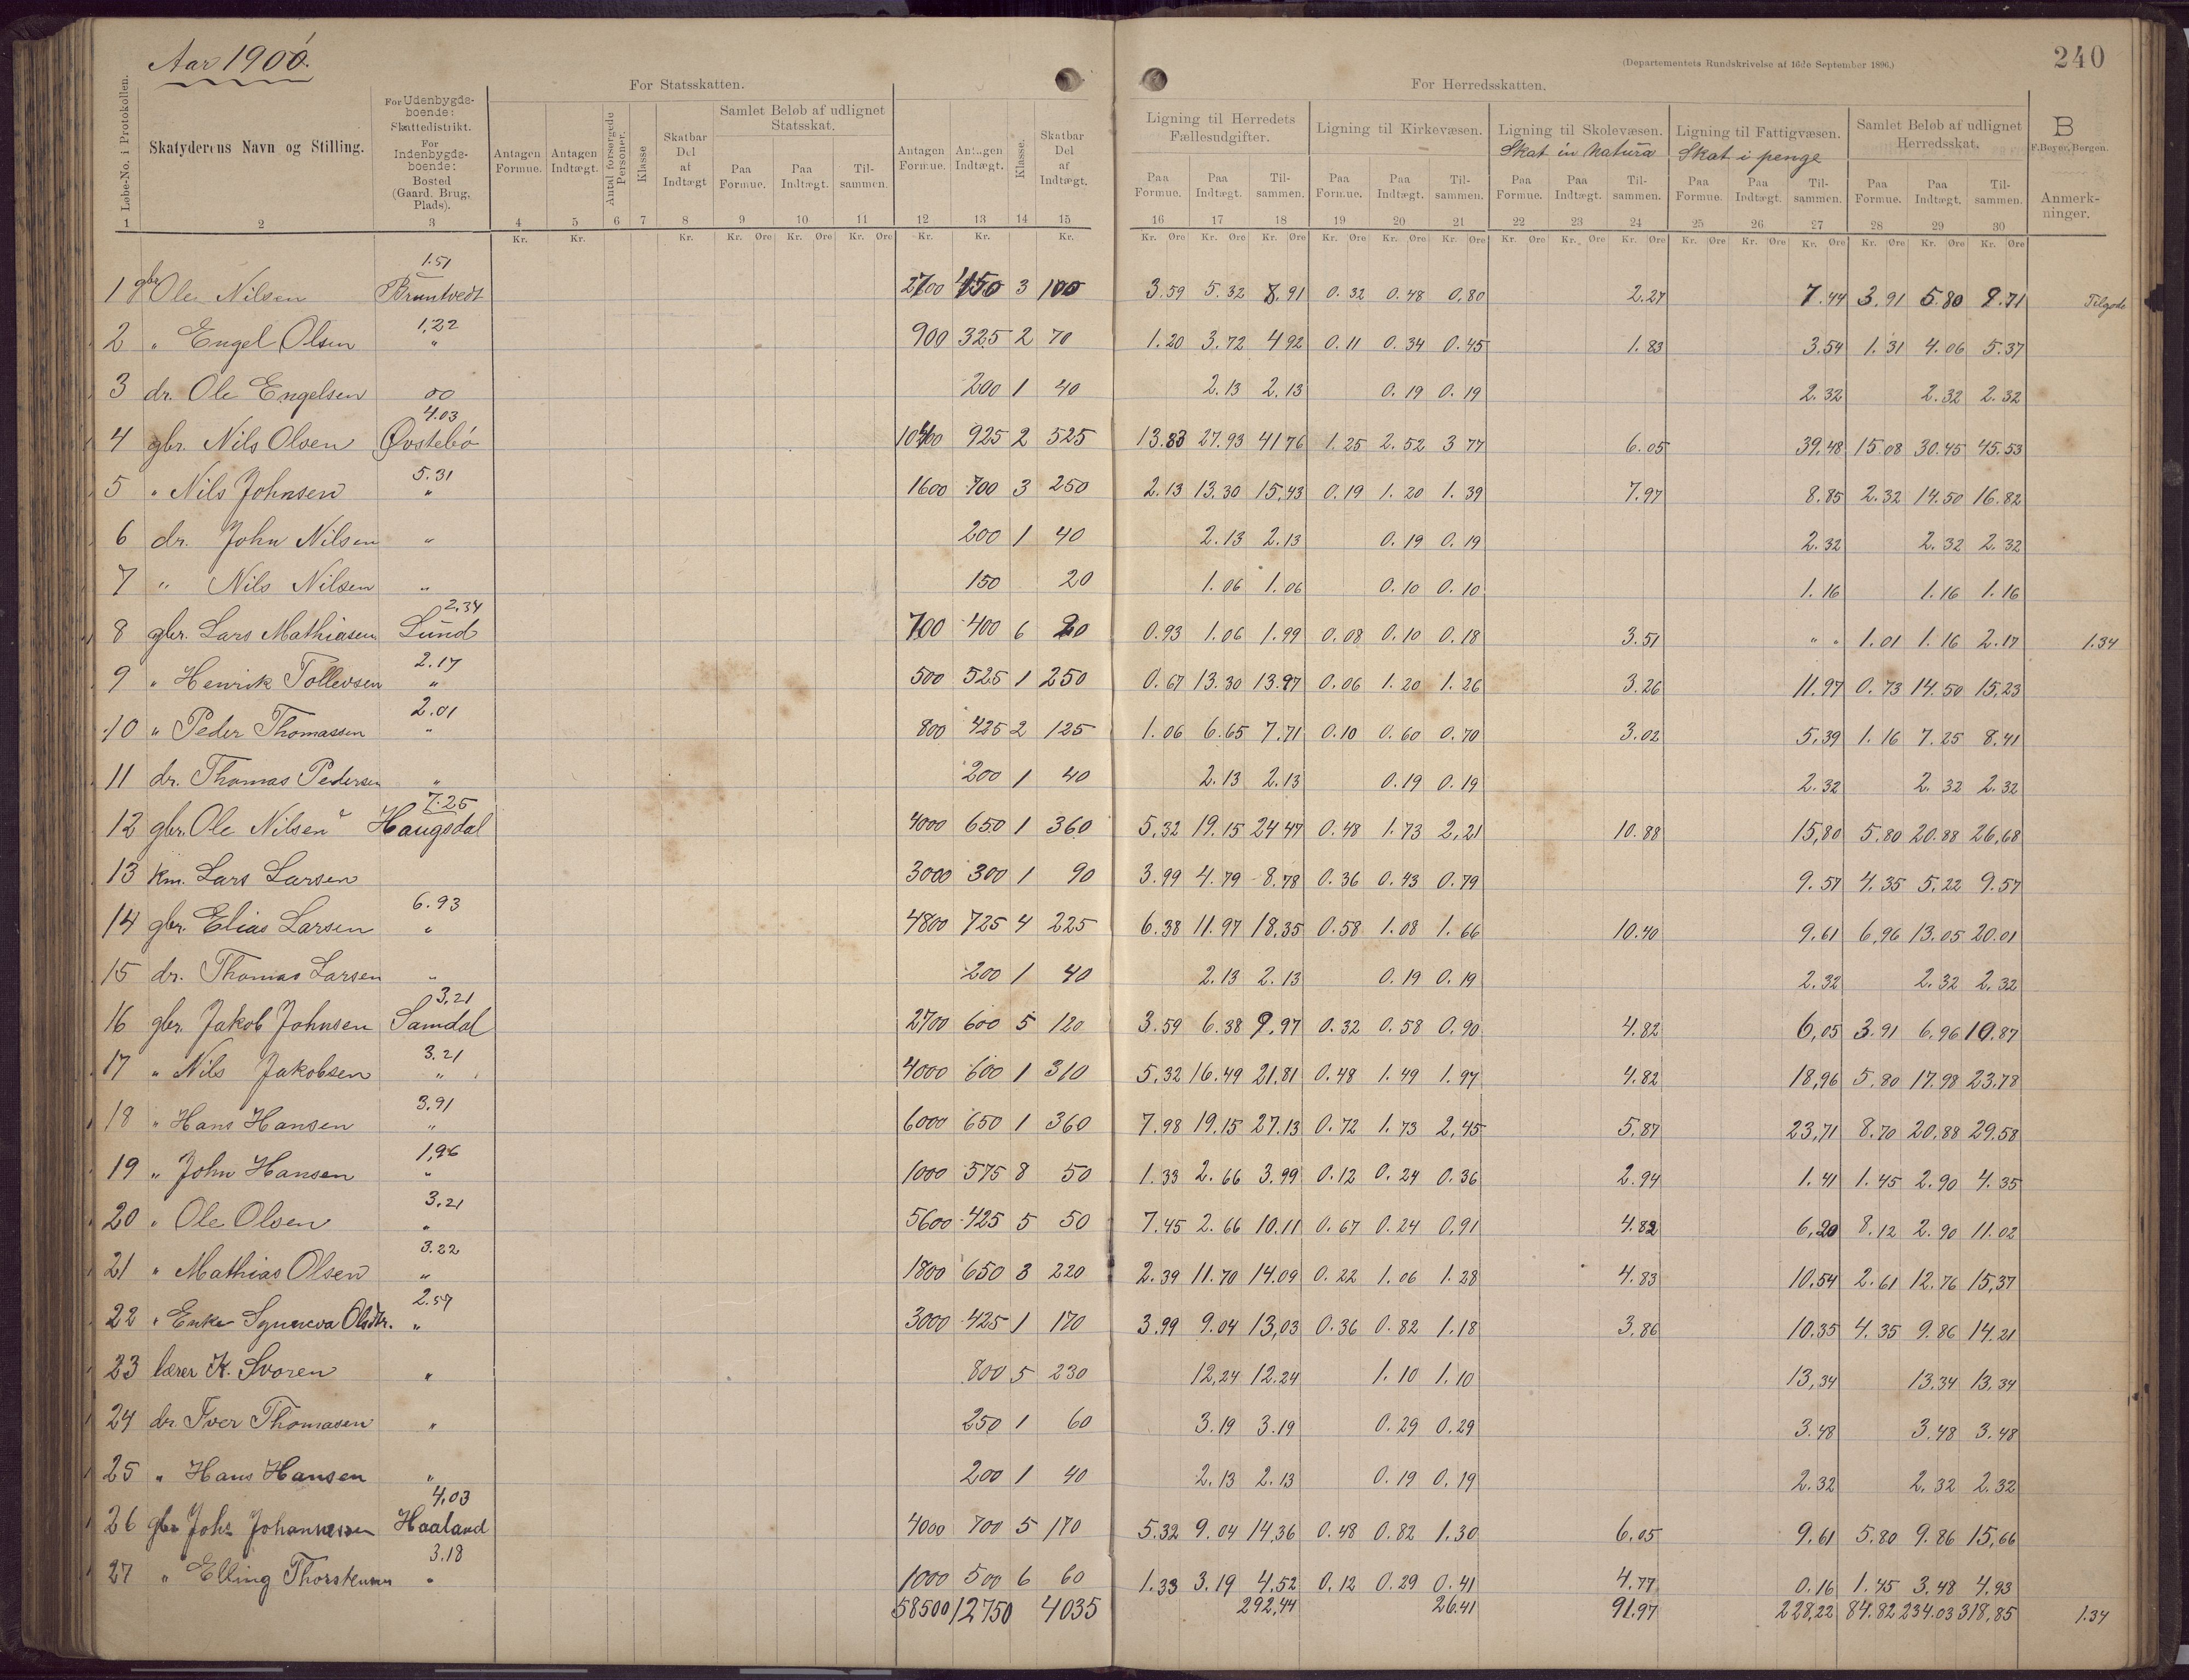 Aar 1900.
240
(Departementets Rundskrivelse af 16de September 1896.)
For Statsskatten.
For Herredsskatten.
Løbe-No. i Protokollen.
Skatyderens Navn og Stilling.
For Udenbygdeboende: Skattedistrikt. For Indenbygdeboende: Bosted (Gaard, Brug, Plads).
Antagen Formue. Antagen Indtægt. Antal forsørgede Personer. Klasse Skatbar Del af Indtægt
Samlet Beløb af udlignet Statsskat.
Paa Formue. Paa Indtægt. Tilsammen.
Antagen Formue. Antagen Indtægt. Klasse. Skatbar Del af Indtægt.
Ligning til Herredets Fællesudgifter. Ligning til Kirkevæsen. Ligning til Skolevæsen. Ligning til Fattigvæsen. Samlet Beløb af udlignet Herredsskat.
Skat in Natura Skat i penge
Paa Formue. Paa Indtægt. Tilsammen. Paa Formue. Paa Indtægt. Tilsammen. Paa Formue. Paa Indtægt. Tilsammen. Paa Formue. Paa Indtægt. Tilsammen. Paa Formue. Paa Indtægt. Tilsammen.
B
F. Beyer, Bergen.
Anmerkninger.
1 2 3 4 5 6 7 8 9 10 11 12 13 14 15 16 17 18 19 20 21 22 23 24 25 26 27 28 29 30
Kr. Kr. Kr. Kr. Øre Kr. Øre Kr. Øre Kr. Kr. Kr. Kr. Øre Kr. Øre Kr. Øre Kr. Øre Kr. Øre Kr. Øre Kr. Øre Kr. Øre Kr. Øre Kr. Øre Kr. Øre Kr. Øre Kr. Øre Kr. Øre Kr. Øre
1.51
1 gbr Ole Nilsen Bruntvedt 2700 450 3 100 3.59 5.32 8.91 0.32 0.48 0.80 2.27 7.44 3.91 5.80 9.71 Tilgode
1.22
2 " Engel Olsen " 900 325 2 70 1.20 3.72 4.92 0.11 0.34 0.45 1.83 3.54 1.31 4.06 5.37
3 dr. Ole Engelsen 200 1 40 2.13 2.13 0.19 0.19 2.32 2.32 2.32
4.03
4 gbr. Nils Olsen Øvstebø 10400 925 2 525 13.83 27.93 41.76 1.25 2.52 3.77 6.05 39.48 15.08 30.45 45.53
5.31
5 " Nils Johnsen " 1600 700 3 250 2.13 13.30 15.43 0.19 1.20 1.39 7.97 8.85 2.32 14.50 16.82
6 dr. John Nilsen " 200 1 40 2.13 2.13 0.19 0.19 2.32 2.32 2.32
7 " Nils Nilsen " 150 20 1.06 1.06 0.10 0.10 1.16 1.16 1.16
2.34
8 gbr. Lars Mathiasen Lund 700 400 6 20 0.93 1.06 1.99 0.08 0.10 0.18 3.51 " " 1.01 1.16 2.17 1.34
2.17
9 " Henrik Tollevsen " 500 525 1 250 0.67 13.30 13.97 0.06 1.20 1.26 3.26 11.97 0.73 14.50 15.23
2.01
10 " Peder Thomassen " 800 425 2 125 1.06 6.65 7.71 0.10 0.60 0.70 3.02 5.39 1.16 7.25 8.41
11 dr. Thomas Pedersen " 200 1 40 2.13 2.13 0.19 0.19 2.32 2.32 2.32
7.25
12 gbr. Ole Nilsen Haugsdal 4000 650 1 360 5.32 19.15 24.47 0.48 1.73 2.21 10.88 15.80 5.80 20.88 26.68
13 km. Lars Larsen 3000 300 1 90 3.99 4.79 8.78 0.36 0.43 0.79 9.57 4.35 5.22 9.57
6.93
14 gbr. Elias Larsen " 4800 725 4 225 6.38 11.97 18.35 0.58 1.08 1.66 10.40 9.61 6.96 13.05 20.01
15 dr. Thomas Larsen " 200 1 40 2.13 2.13 0.19 0.19 2.32 2.32 2.32
3.21
16 gbr. Jakob Johnsen Samdal 2700 600 5 120 3.59 6.38 9.97 0.32 0.58 0.90 4.82 6.05 3.91 6.96 10.87
3.21
17 " Nils Jakobsen " 4000 600 1 310 5.32 16.49 21.81 0.48 1.49 1.97 4.82 18.96 5.80 17.98 23.78
3.91
18 " Hans Hansen " 6000 650 1 360 7.98 19.15 27.13 0.72 1.73 2.45 5.87 23.71 8.70 20.88 29.58
1.96
19 " John Hansen " 1000 575 8 50 1.33 2.66 3.99 0.12 0.24 0.36 2.94 1.41 1.45 2.90 4.35
3.21
20 " Ole Olsen " 5600 425 5 50 7.45 2.66 10.11 0.67 0.24 0.91 4.82 6.20 8.12 2.90 11.02
3.22
21 " Mathias Olsen " 1800 650 3 220 2.39 11.70 14.09 0.22 1.06 1.28 4.83 10.54 2.61 12.76 15.37
2.57
22 " Enke Synneva Olsdtr. " 3000 425 1 170 3.99 9.04 13.03 0.36 0.82 1.18 3.86 10.35 4.35 9.86 14.21
23 lærer K. Svoren " 800 5 230 12.24 12.24 1.10 1.10 13.34 13.34 13.34
24 dr. Iver Thomasen " 250 1 60 3.19 3.19 0.29 0.29 3.48 3.48 3.48
25 " Hans Hansen " 200 1 40 2.13 2.13 0.19 0.19 2.32 2.32 2.32
4.03
26 gbr Johs Johannessen Haaland 4000 700 5 170 5.32 9.04 14.36 0.48 0.82 1.30 6.05 9.61 5.80 9.86 15.66
3.18
27 " Elling Thorstensen " 1000 500 6 60 1.33 3.19 4.52 0.12 0.29 0.41 4.77 0.16 1.45 3.48 4.93
58500 12750 4035 292.44 26.41 91.97 228.22 84.82 234.03 318.85 1.34